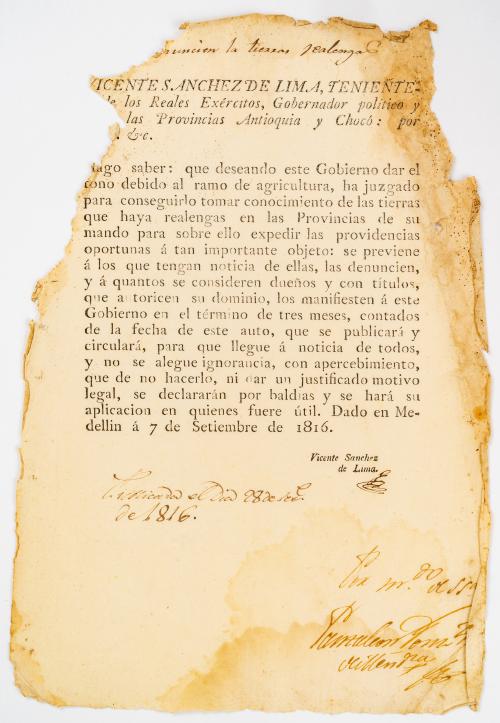 la tierras realengas
VICENTE SANCHEZ DE LIMA, TENIENTE-
de los Reales Exércitos, Gobernador político y
las Provincias Antioquia y Chocó: por
&c.
Hago saber: que deseando este Gobierno dar el
tono debido al ramo de agricultura, ha juzgado
para conseguirlo tomar conocimiento de las tierras
que haya realengas en las Provincias de su
mando para sobre ello expedir las providencias
oportunas á tan importante objeto: se previene
á los que tengan noticia de ellas, las denuncien,
y á quantos se consideren dueños y con títulos,
que autoricen su dominio, los manifiesten á este
Gobierno en el término de tres meses, contados
de la fecha de este auto, que se publicará y
circulará, para que llegue á noticia de todos,
y no se alegue ignorancia, con apercebimiento,
que de no hacerlo, ni dar un justificado motivo
legal, se declararán por baldias y se hará su
aplicacion en quienes fuere útil. Dado en Me-
dellin á 7 de Setiembre de 1816.
Vicente Sanchez
de Lima.
el Dia 28 de
de 1816.